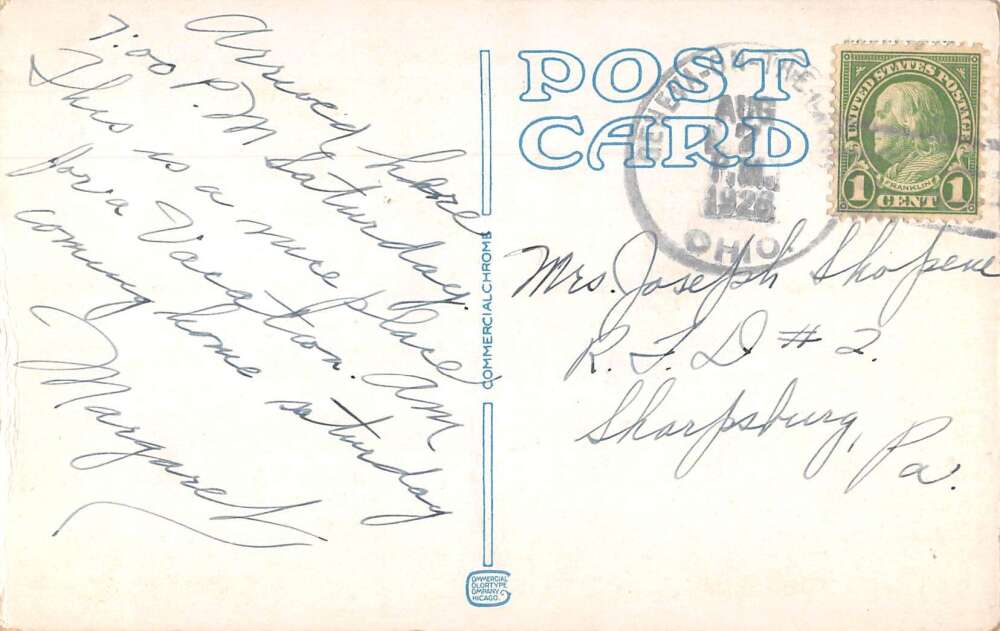 Arrived here
7:00 P.M Saturday.
This is a nice place
for a Vacation. Am
coming home saturday
Margaret
COMMERCIALCHROME
COMMERCIAL
COLORTYPE
COMPANY
CHICAGO
POST
CARD
AUG
1926
OHIO
UNITED STATES POSTAGE
FRANKLIN
1 CENT 1
Mrs. Joseph Shopene
R. F. D # 2.
Sharpsburg,
Pa.